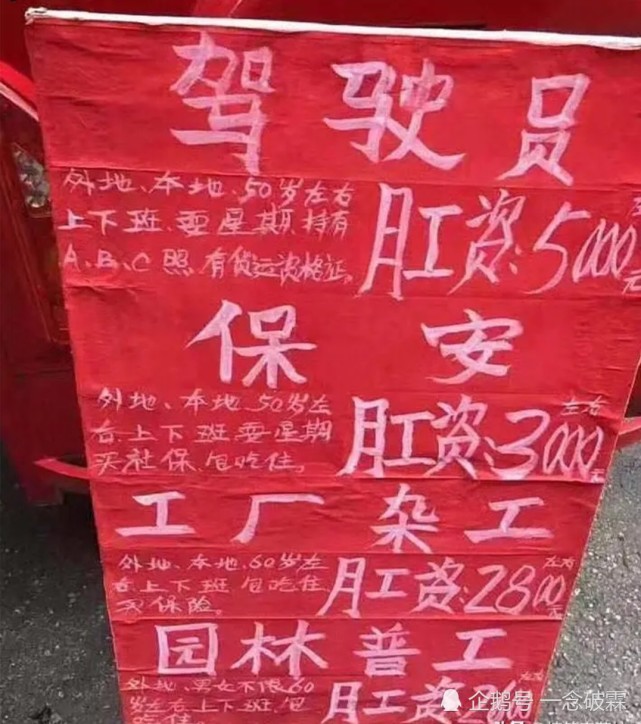 驾驶员
外地、本地、50岁左右
上下班、耍星期、持有
A、B、C照 有货运资格证。
月工资:5000元
左右
保安
外地、本地、50岁左
右、上下班、耍星期
买社保、包吃住。
月工资:3000元
左右
工厂杂工
外地、本地、60岁左
右、上下班、包吃住
买保险。
月工资:2800元
左右
园林普工
外地、男女不限60
岁左右、上下班、包
月工资:26
左右
企鹅号 一念破霖